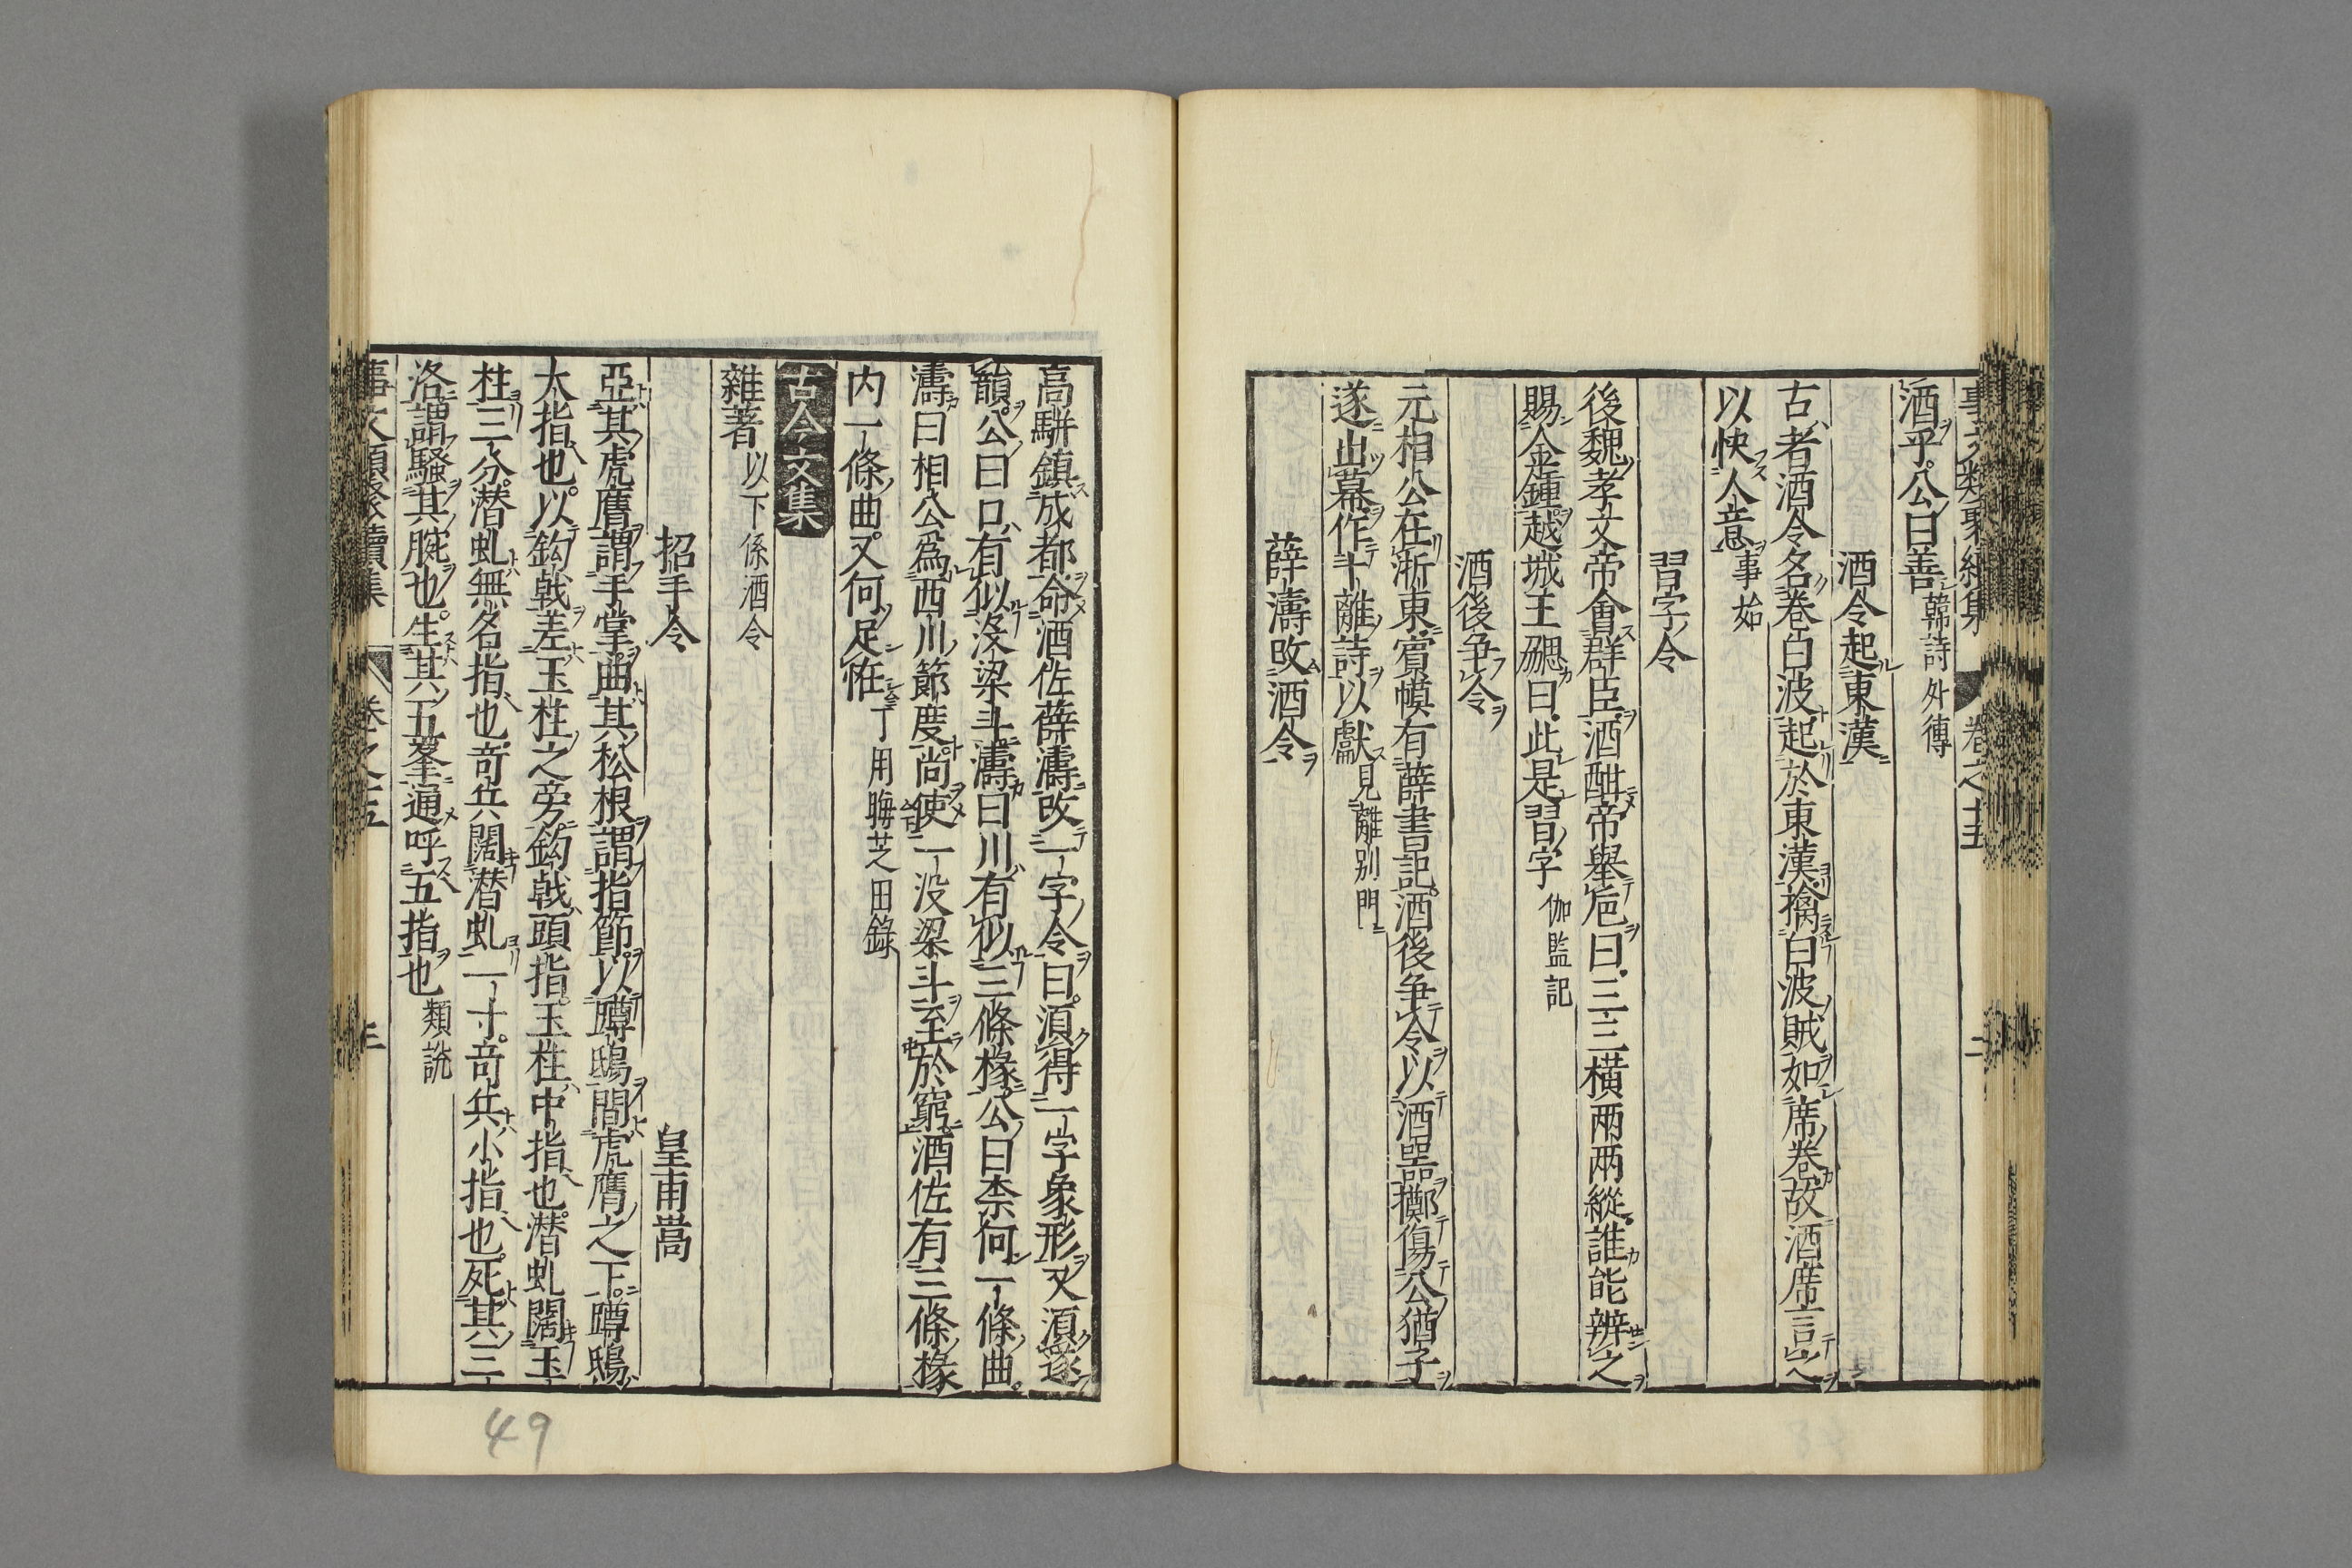 酒乎公曰善韓詩外傳
酒令起東漢
古者酒令名卷白波起於東漢擒白波賊如席卷故酒席言之
以快人意事始
習字令
後魏孝文帝會群臣酒酣帝舉巵曰三三橫兩兩縱誰能辨之
賜金鍾越城王勰曰此是習字伽監記
酒後争令
元相公在浙東賓幙有薛書記酒後争令以酒噐擲傷公猶子
遂出幕作十離詩以獻見離别門
薛濤改酒令
高駢鎮成都命酒佐薛濤改一字令曰須得一字象形又須逐
韻公曰口有似没梁斗濤曰川有似三條椽公曰柰何一條曲
濤曰相公爲西川節度尚使一没梁斗至於窮酒佐有三條椽
内一條曲又何足恠丁用晦芝田錄
古今文集
雜著以下係酒令
招手令
皇甫嵩
亞其虎膺謂手掌曲其松根謂指節以蹲鴟間虎膺之下蹲鴟
大指也以鈎戟差玉柱之旁鈎戟頭指玉柱中指也潜虬闊玉
柱三分潜虬無名指也竒兵闊潜虬一寸竒兵小指也死其三
洛謂騷其腕也生其五峯通呼五指也類說
卷之十五
49